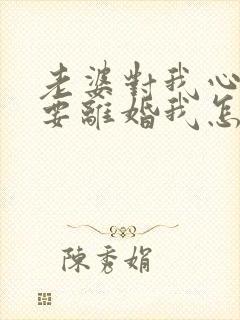 老婆對我心
要離婚我怎
陳秀娟